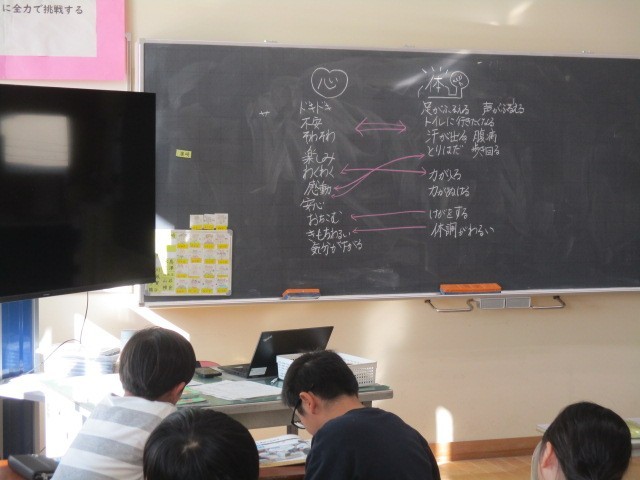 に全力で挑戦する
心
ドキドキ
不安
そわそわ
楽しみ
わくわく
感動
安心
おちこむ
きもちわるい
気分が下がる
体
足がふるえる 声がふるえる
トイレに行きたくなる
汗が出る 腹痛
とりはだ 歩き回る
力が入る
力がぬける
けがをする
体調がわるい